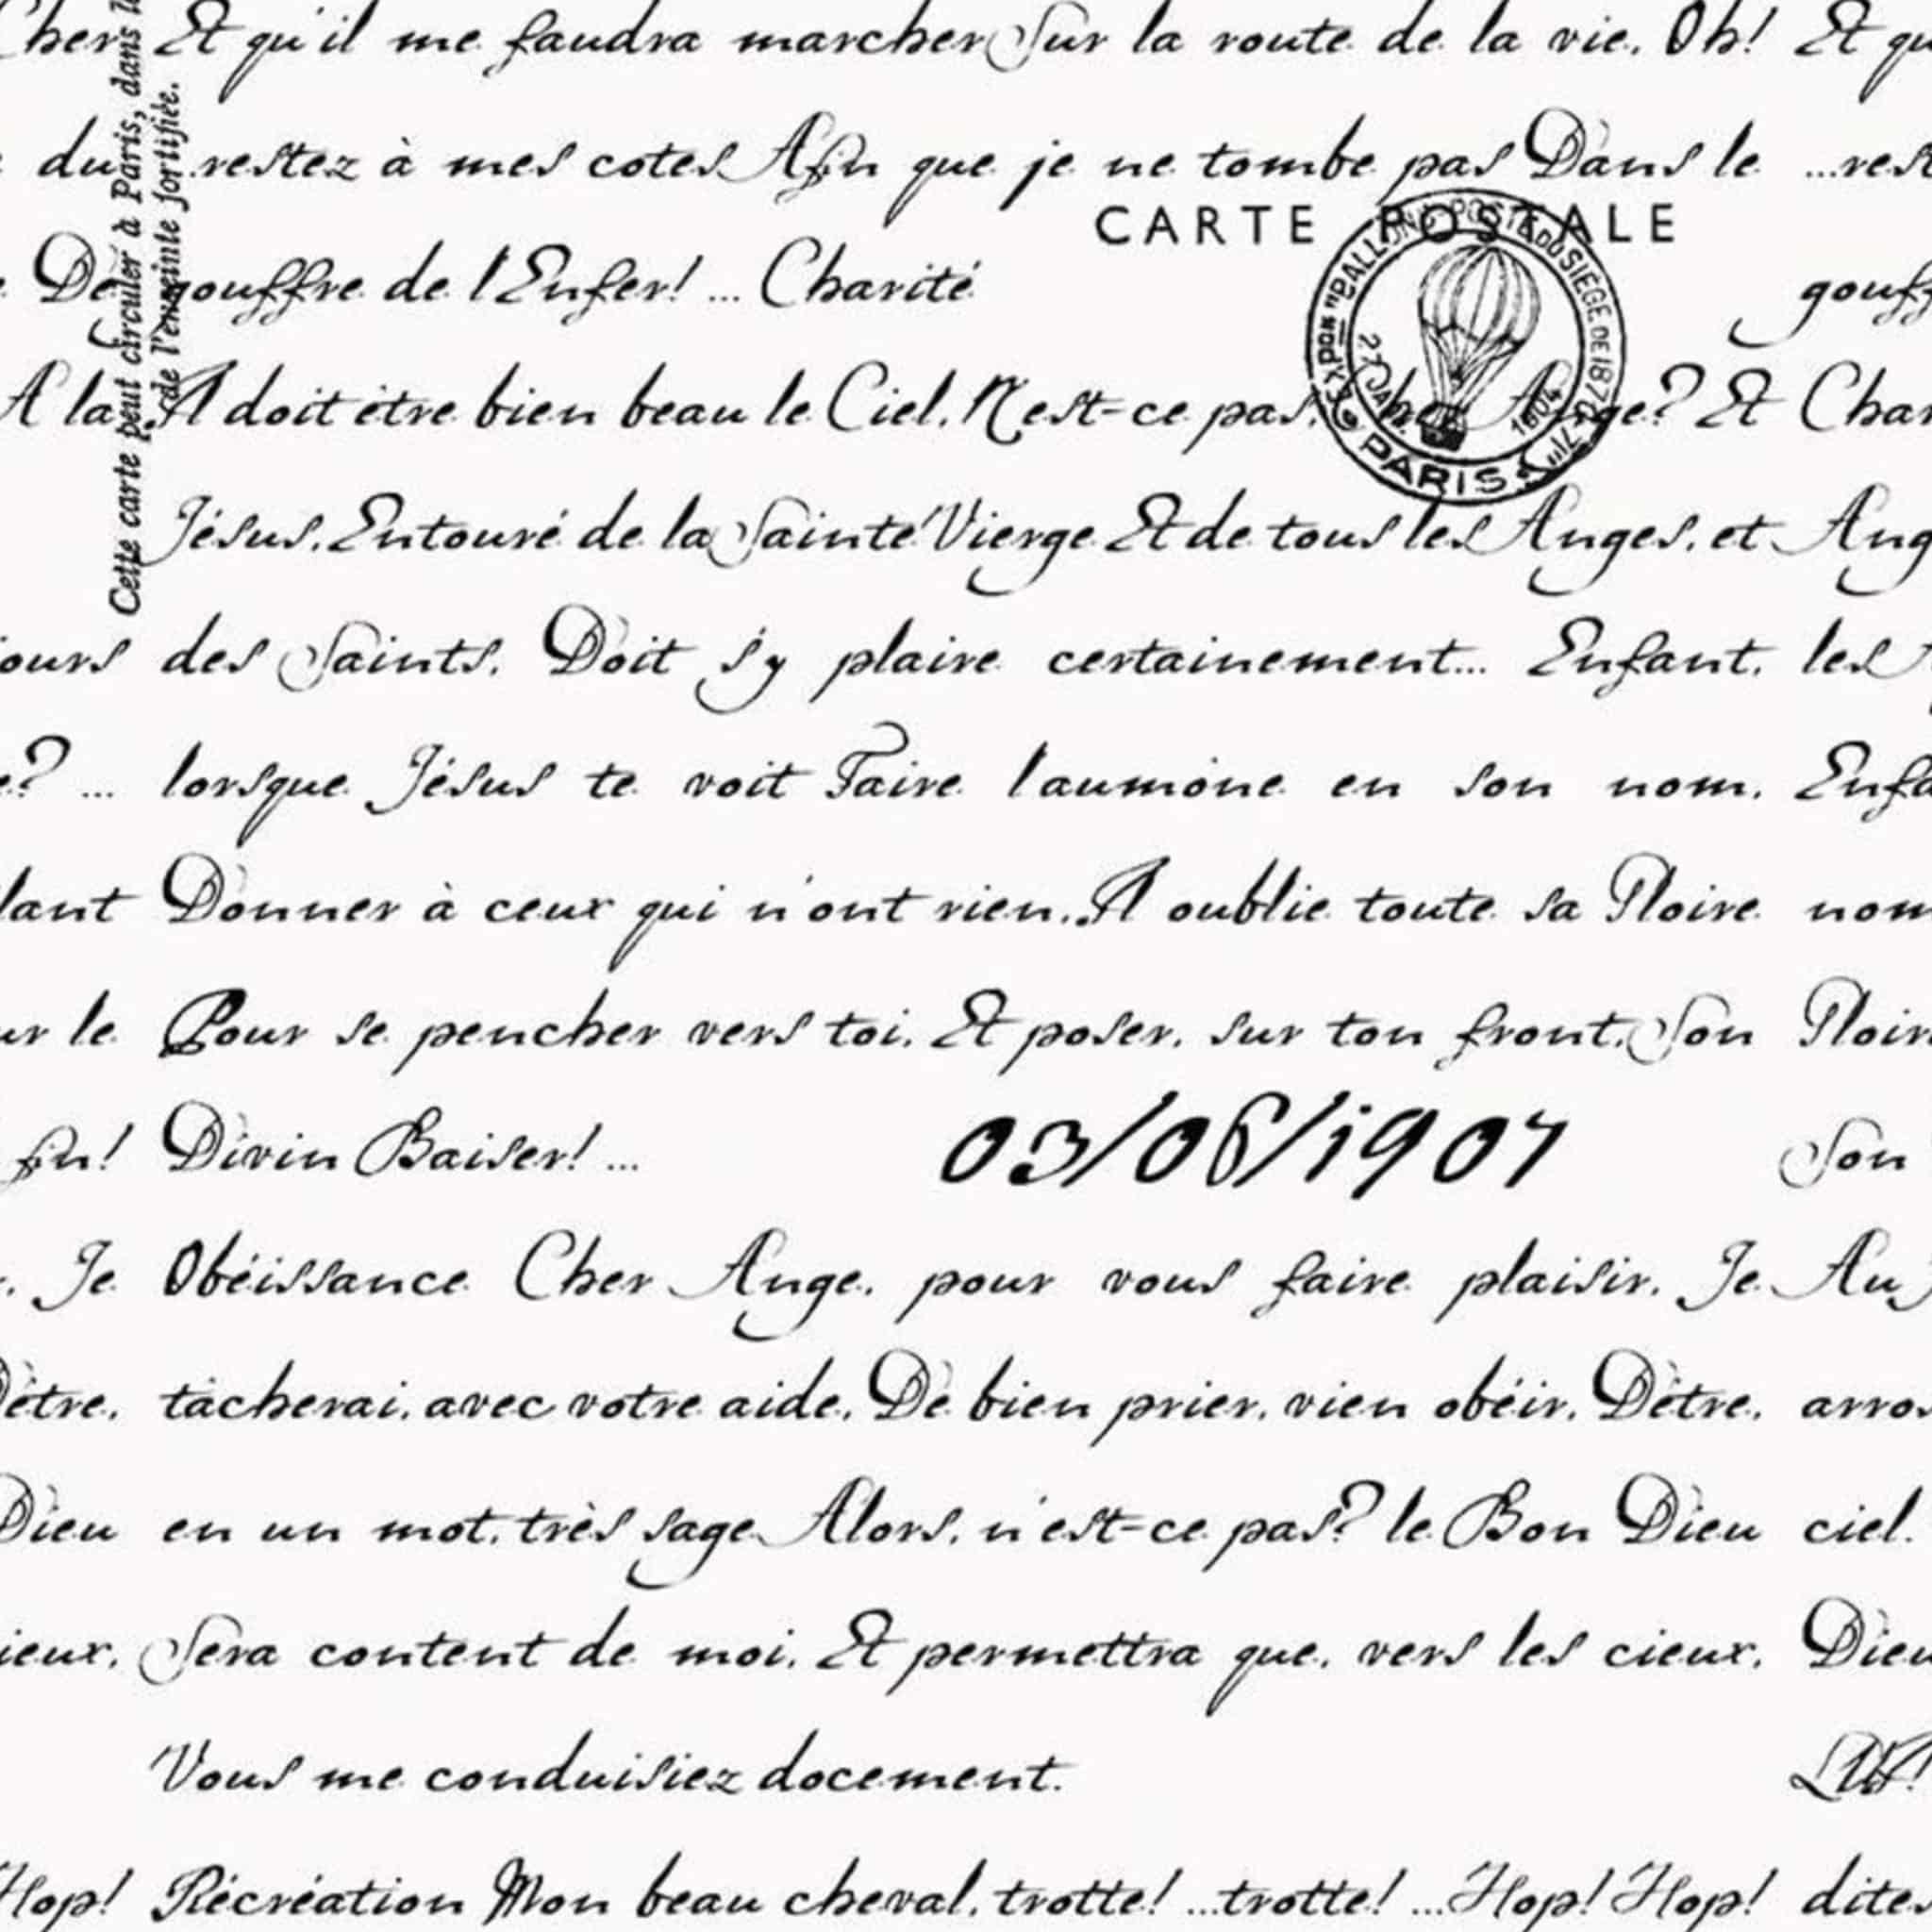 Cher Et qu'il me faudra marcher Sur la route de la vie. Oh! Et qu
du restez à mes cotes Afin que je ne tombe pas Dans le ...rest
CARTE POSTALE
De gouffre de l'Enfer! ... Charité gouff
A la Il doit être bien beau le Ciel. N'est-ce pas, cher Ange? Et Char
Jésus. Entouré de la Sainte Vierge Et de tous les Anges, et Ang
ours des Saints. Doit s'y plaire certainement... Enfant, les
e? ... lorsque Jésus te voit Faire l'aumône en son nom. Enfa
lant Donner à ceux qui n'ont rien. Il oublie toute sa Gloire nom
ur le Pour se pencher vers toi. Et poser, sur ton front. Son Gloir
fin! Divin Baiser! ... 03/06/1907 Son
. Je Obéissance Cher Ange, pour vous faire plaisir. Je Au
Dêtre, tâcherai, avec votre aide, De bien prier, vien obéir, Dêtre, arro
Dieu en un mot, très sage Alors, n'est-ce pas? le Bon Dieu ciel.
ieux, Sera content de moi. Et permettra que, vers les cieux, Dieu
Vous me conduisiez docement.
Hop! Récréation Mon beau cheval, trotte! ...trotte! ...Hop! Hop! dites
Cette carte peut circuler à Paris, dans l
de l'enceinte fortifiée.
"BALLONS-POSTE DU SIÈGE DE 1870-71"
PARIS
27 JAN. 1804